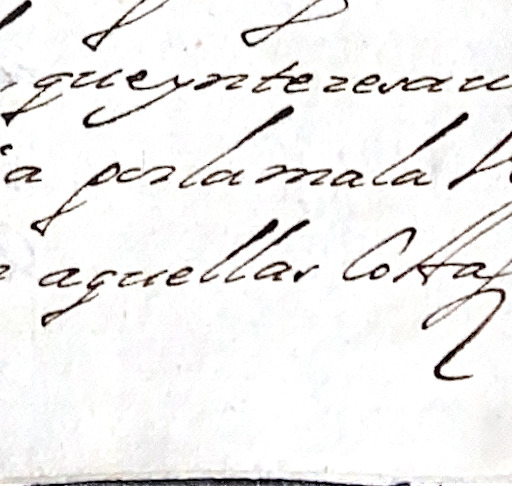 queynteresan
porlamala
aquellas Costas